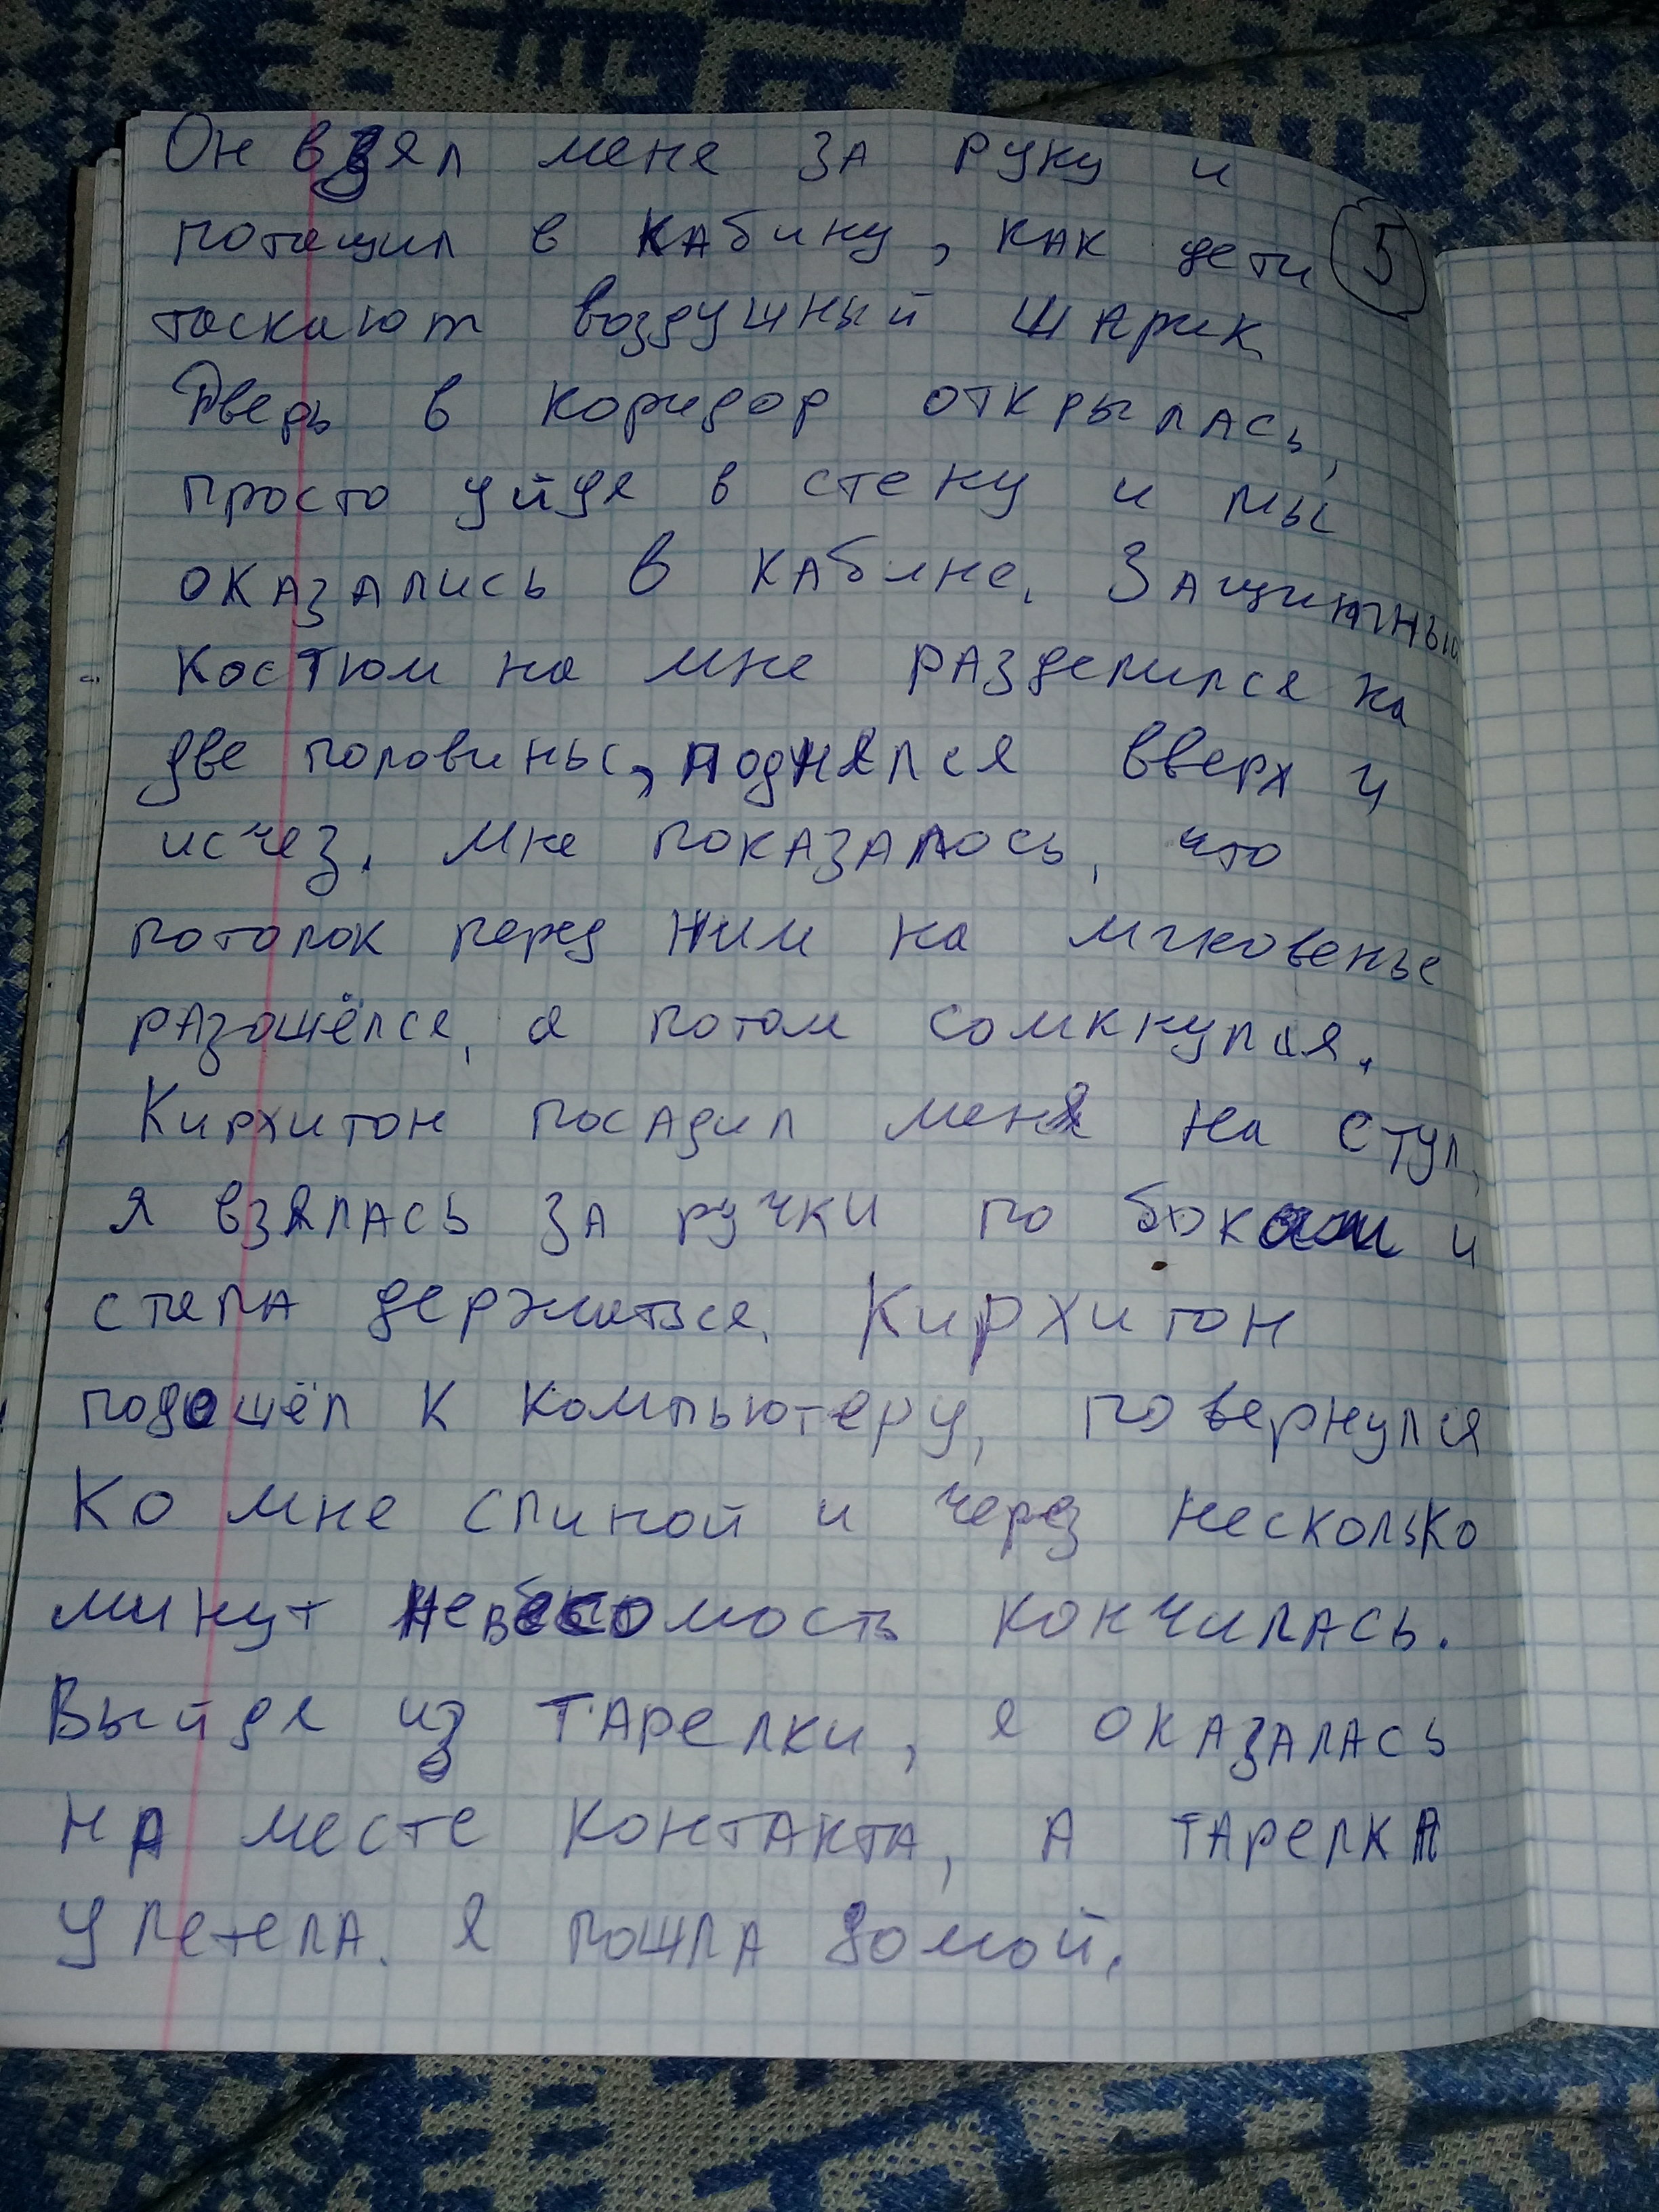 Он взял меня за руку и
потащил в кабину, как дети
5
таскают воздушный шарик
Дверь в коридор открылась,
просто уйдя в стену и мы
оказались в кабине. Защитный
костюм на мне разделился на
две половины, поднялся вверх и
исчез. Мне показалось, что
потолок перед ним на мгновенье
разошёлся, а потом сомкнулся.
Кирхитон посадил меня на стул,
я взялась за ручки по бокам и
стала держаться. Кирхитон
подошёл к компьютеру, повернулся
ко мне спиной и через несколько
минут невесомость кончилась.
Выйдя из тарелки, я оказалась
на месте контакта, а тарелка
улетела. Я пошла домой.